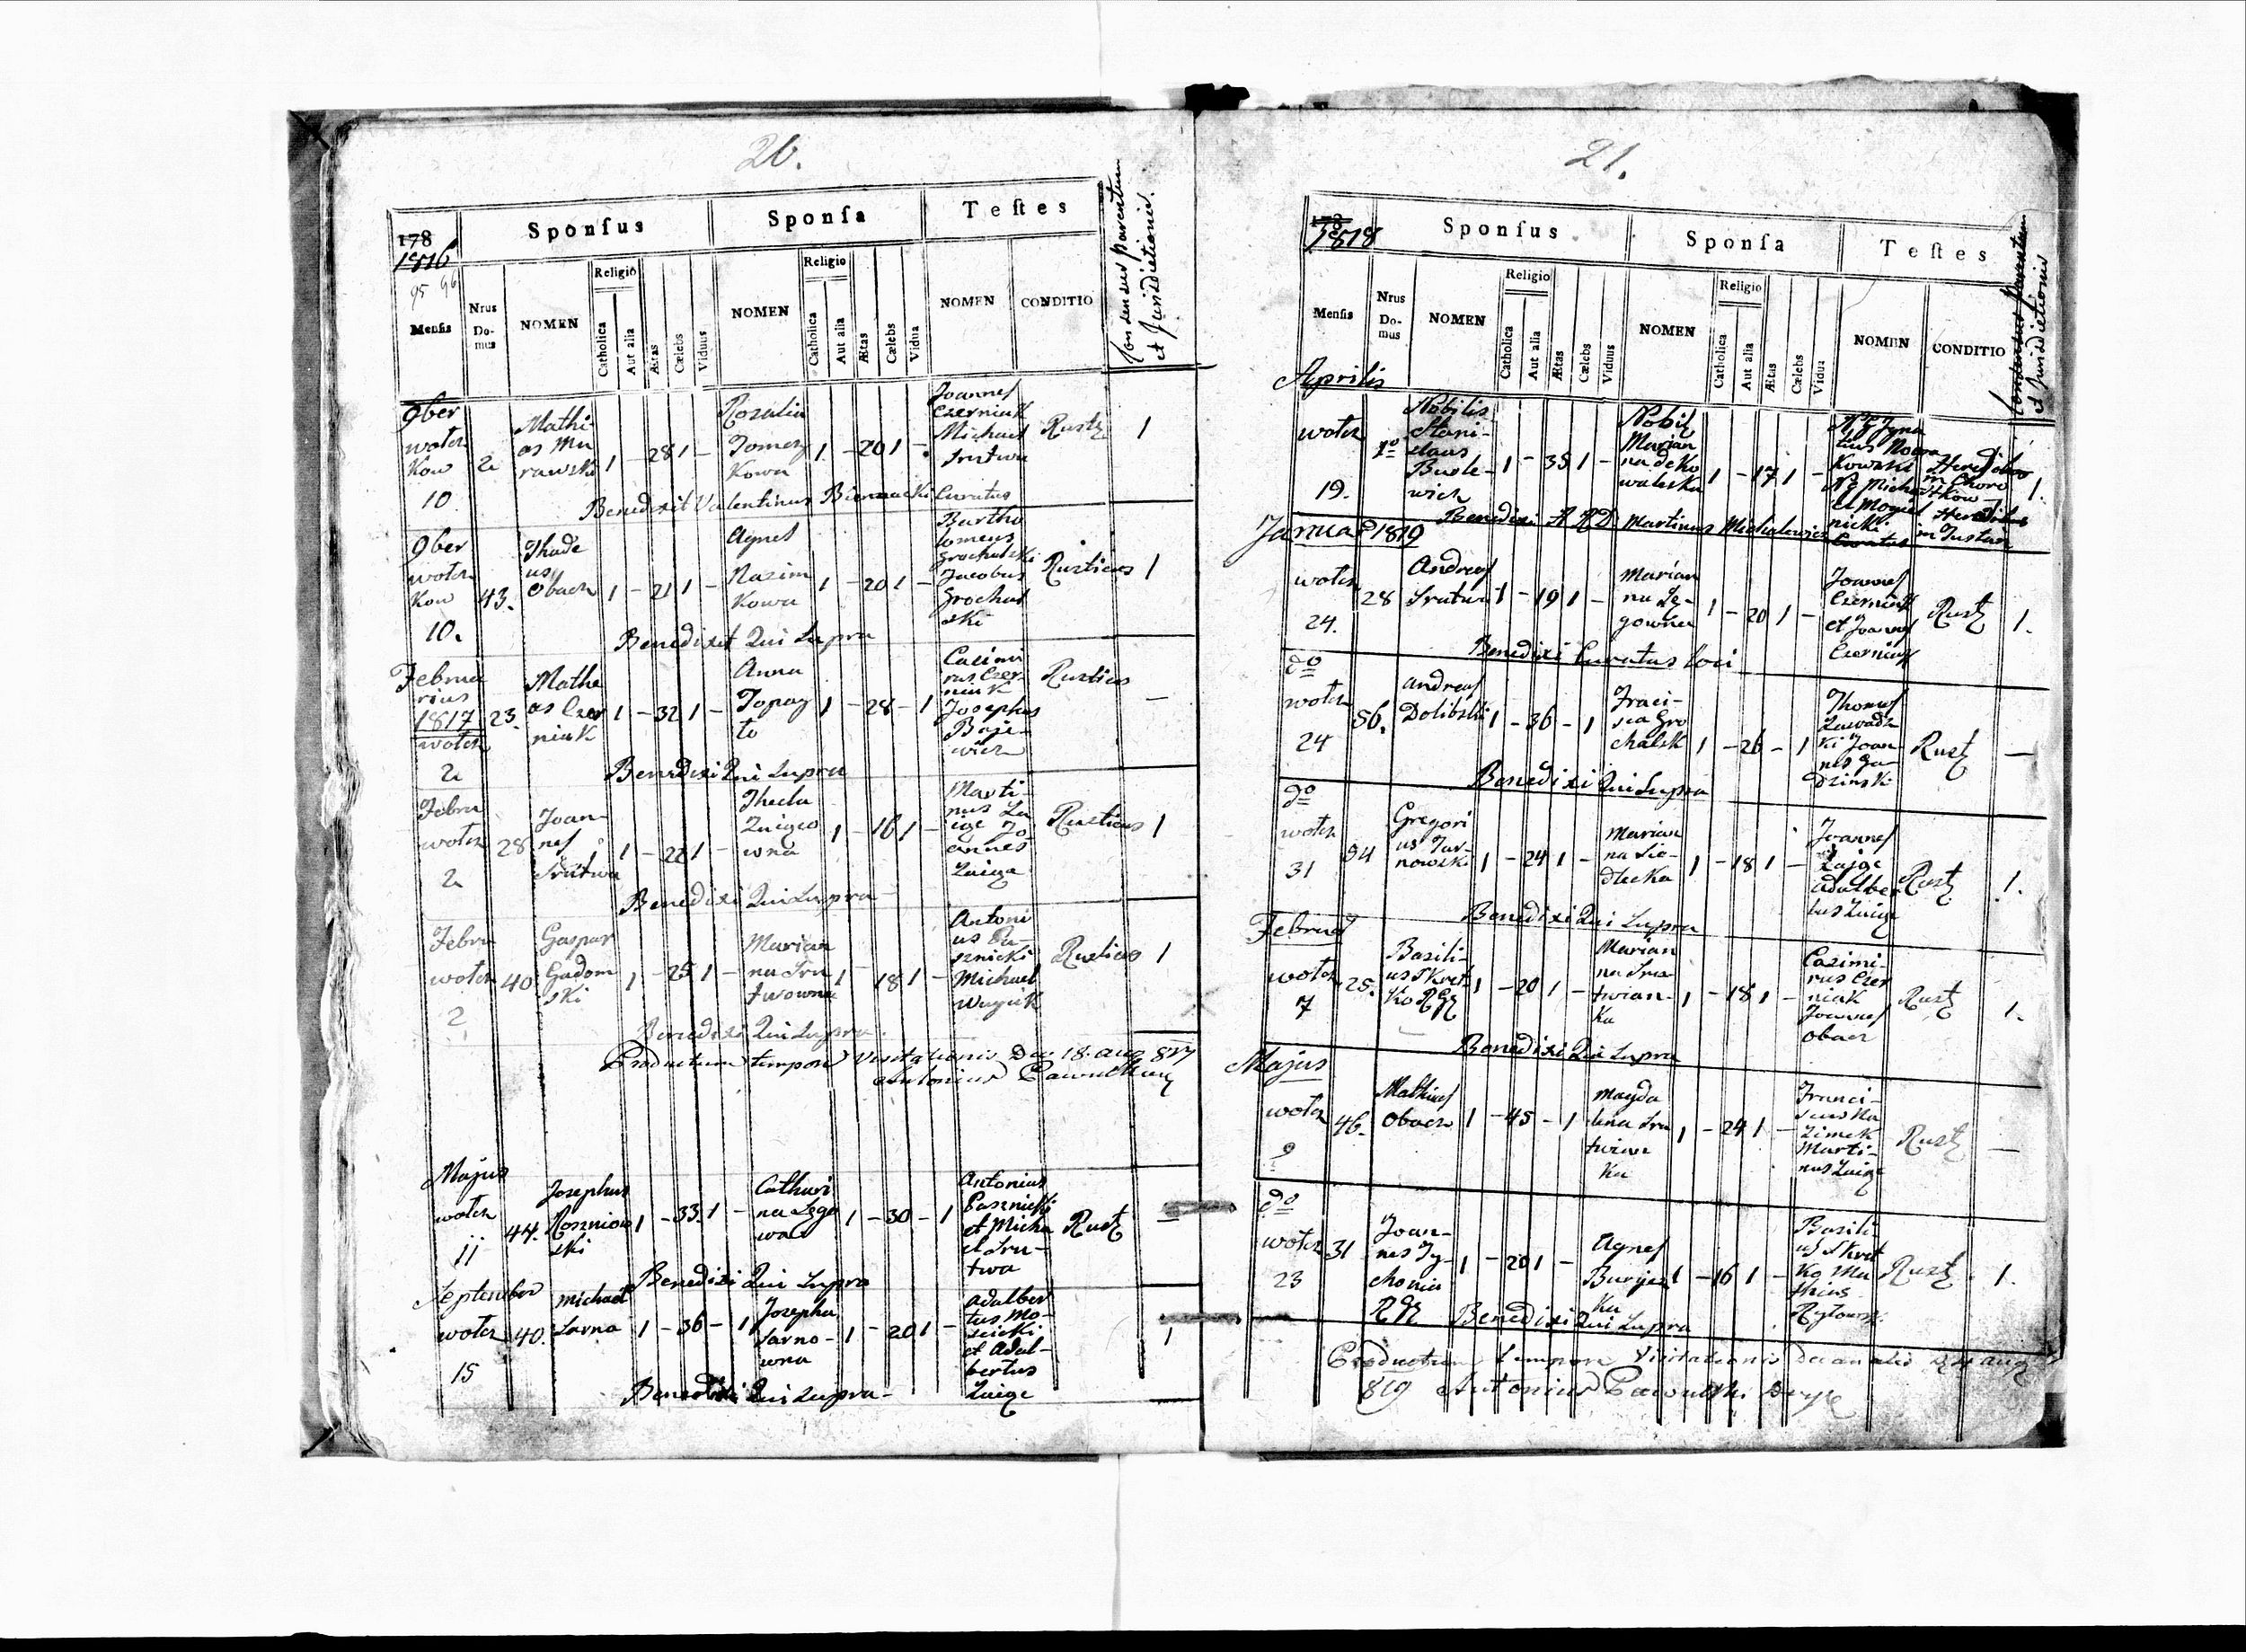 20.
178
1816
95 96
Sponſus
Sponſa
Teſtes
Consensus Parentum
et Jurisdictionis.
Menſis
Nrus
Do-
mus
NOMEN
Religio
Catholica
Aut alia
Ætas
Cælebs
Viduus
NOMEN
Religio
Catholica
Aut alia
Ætas
Cælebs
Vidua
NOMEN
CONDITIO
9ber
wotcz
kow
10
2
Mathi-
as Mu
rawski
1 - 28 1 -
Rozalia
Tomcz
kowa
1 - 20 1
Joannes
Czerniak
Michael
Srutwa
Rustz
1
Benedixit Valentinus Biernacki Curatus
9ber
wotcz
kow
10.
43.
Thade
us
Obacz
1 - 21 1 -
Agnes
Kazim
kowa
1 - 20 1 -
Bartho
lomeus
Grochalski
Jacobus
Grochal
ski
Rusticus
1
Benedixit Qui Supra
Februa
rius
1817
wotcz
2
23.
Mathe
as Czer
niak
1 - 32 1 -
Anna
Topay
to
1 - 28 - 1
Casimi
rus Czer
niak
Josephus
Baje-
wicz
Rusticus
—
Benedixi Qui Supra
Febru
wotcz
2
28
Joan-
nes
Srutwa
1 - 22 1 -
Thecla
Zaigo
wna
1 - 16 1 -
Marti-
nus Za
ige Jo
annes
Zaiga
Rusticus
1
Benedixi Qui Supra
Febru
wotcz
2
40
Gaspar
Gadom
ski
1 - 25 1 -
Marian
na Sru
twowna
1 - 18 1 -
Antoni
us Pa-
sznicki
Michael
Wayuk
Rusticus
1
Benedixi Qui Supra.
Productum tempore Visitationis Dec 18 aug 817
Antonius
Majus
wotcz
11
44.
Josephus
Koszniow
ski
1 - 33. 1 -
Cathari
na Zygo
wa
1 - 30 - 1
Antonius
Pasznicki
et Micha
el Sru-
twa
Rustz
—
Benedixi Qui Supra
September
wotcz
15
40.
Michael
Sarna
1 - 36 - 1
Josepha
Sarno-
wna
1 - 20 1 -
Adalber
tus Mo-
scicki
et Adal-
bertus
Zaige
1
Benedixi Qui Supra -
21.
178
1818
Sponſus
Sponſa
Teſtes
Consensus Parentum
et Jurisdictionis
Menſis
Nrus
Do-
mus
NOMEN
Religio
Catholica
Aut alia
Ætas
Cælebs
Viduus
NOMEN
Religio
Catholica
Aut alia
Ætas
Cælebs
Vidua
NOMEN
CONDITIO
Aprilis
wotcz
19.
Nobilis
Stani-
slaus
Busle-
wicz
1 - 35 1 -
Nobil
Marian
na de Ko
walska
1 - 17 1 -
tius Nowa
kowski
Heredibus
in
1.
Benedixi A RD Martinus Michalewicz
Curatus
Januar 1819
wotcz
24.
28
Andreas
Srutwa
1 - 19 1 -
Marian
na Ze-
gowna
1 - 20 1 -
Joannes
Czerniak
et Joannes
Czerniak
Rustz
1.
Benedixi Curatus loci
do
wotcz
24
56.
Andreas
Dolibski
1 - 36 - 1
Fraci-
sca Gro
chalsk
1 - 26 - 1
Thomas
Zawadz
ki Joan
nes Ga-
dzinski
Rustz
—
Benedixi Qui Supra
do
wotcz
31
54
Gregori
us Tar-
nowski
1 - 24 1 -
Marian
na Sie-
dlecka
1 - 18 1 -
Joannes
Zajge
Adalber
tus Zaige
Rustz
1.
Benedixi Qui Supra
Februar
wotcz
7
25.
Basili-
us Skret
ko RGr
1 - 20 1 -
Marian
na Sru-
twian-
ka
1 - 18 1 -
Casimi-
rus Czer
niak
Joannes
Obacz
Rustz
1.
Benedixi Qui Supra
Majus
wotcz
9
46.
Mathias
Obacz
1 - 45 - 1
Magda
lena Sru
twian
ka
1 - 24 1 -
Franci-
scus Ka
zimek
Marti-
nus Zaige
Rustz
—
do
wotcz
23
31
Joan-
nes Ty-
chonia
RGr
1 - 20 1 -
Agnes
Buryasz
ka
1 - 16 1 -
Basili
us Skret
ko Ma
thias
Rustz
1.
Benedixi Qui Supra
Productum tempore Visitationis Decanalis aug
819 Antonius